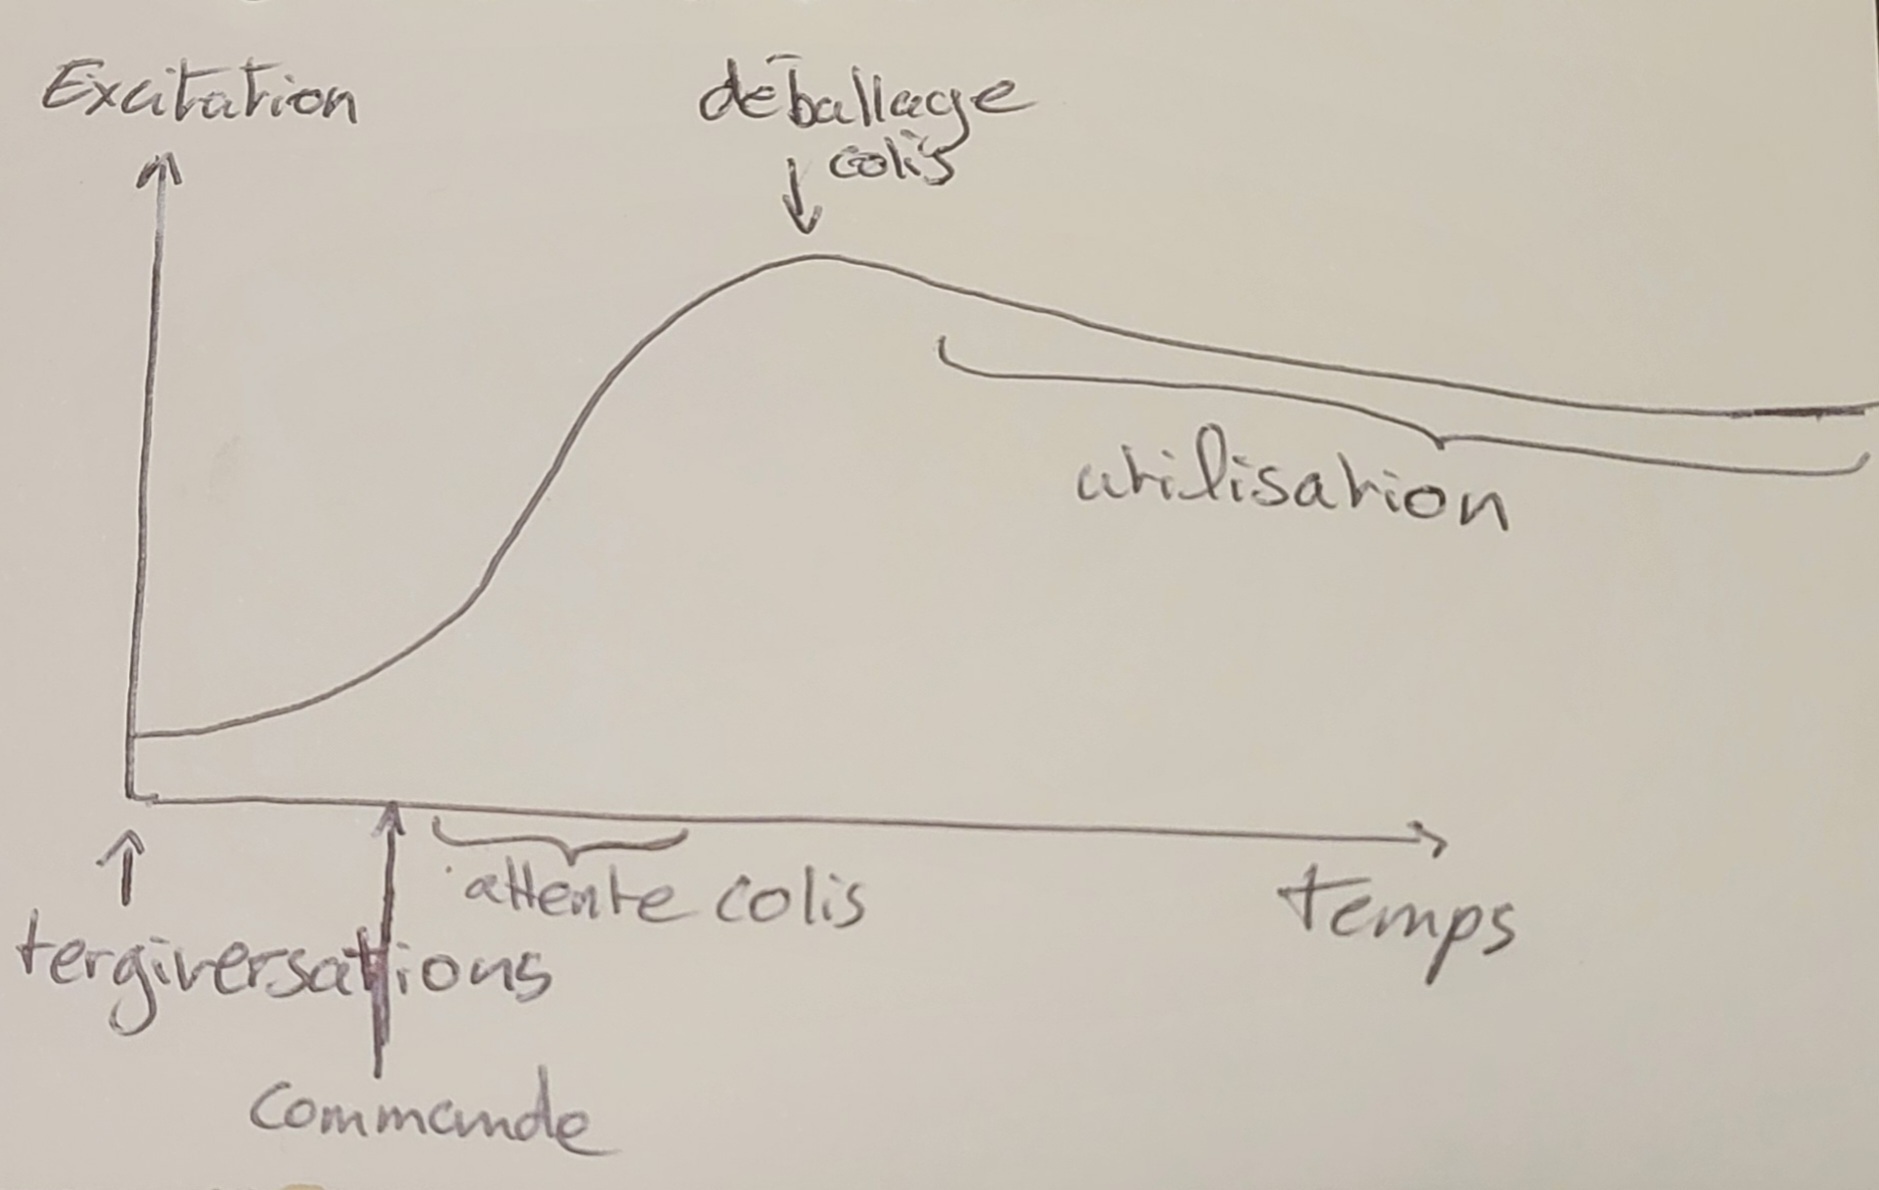 Excitation
déballage
colis
utilisation
attente colis
temps
tergiversations
Commande